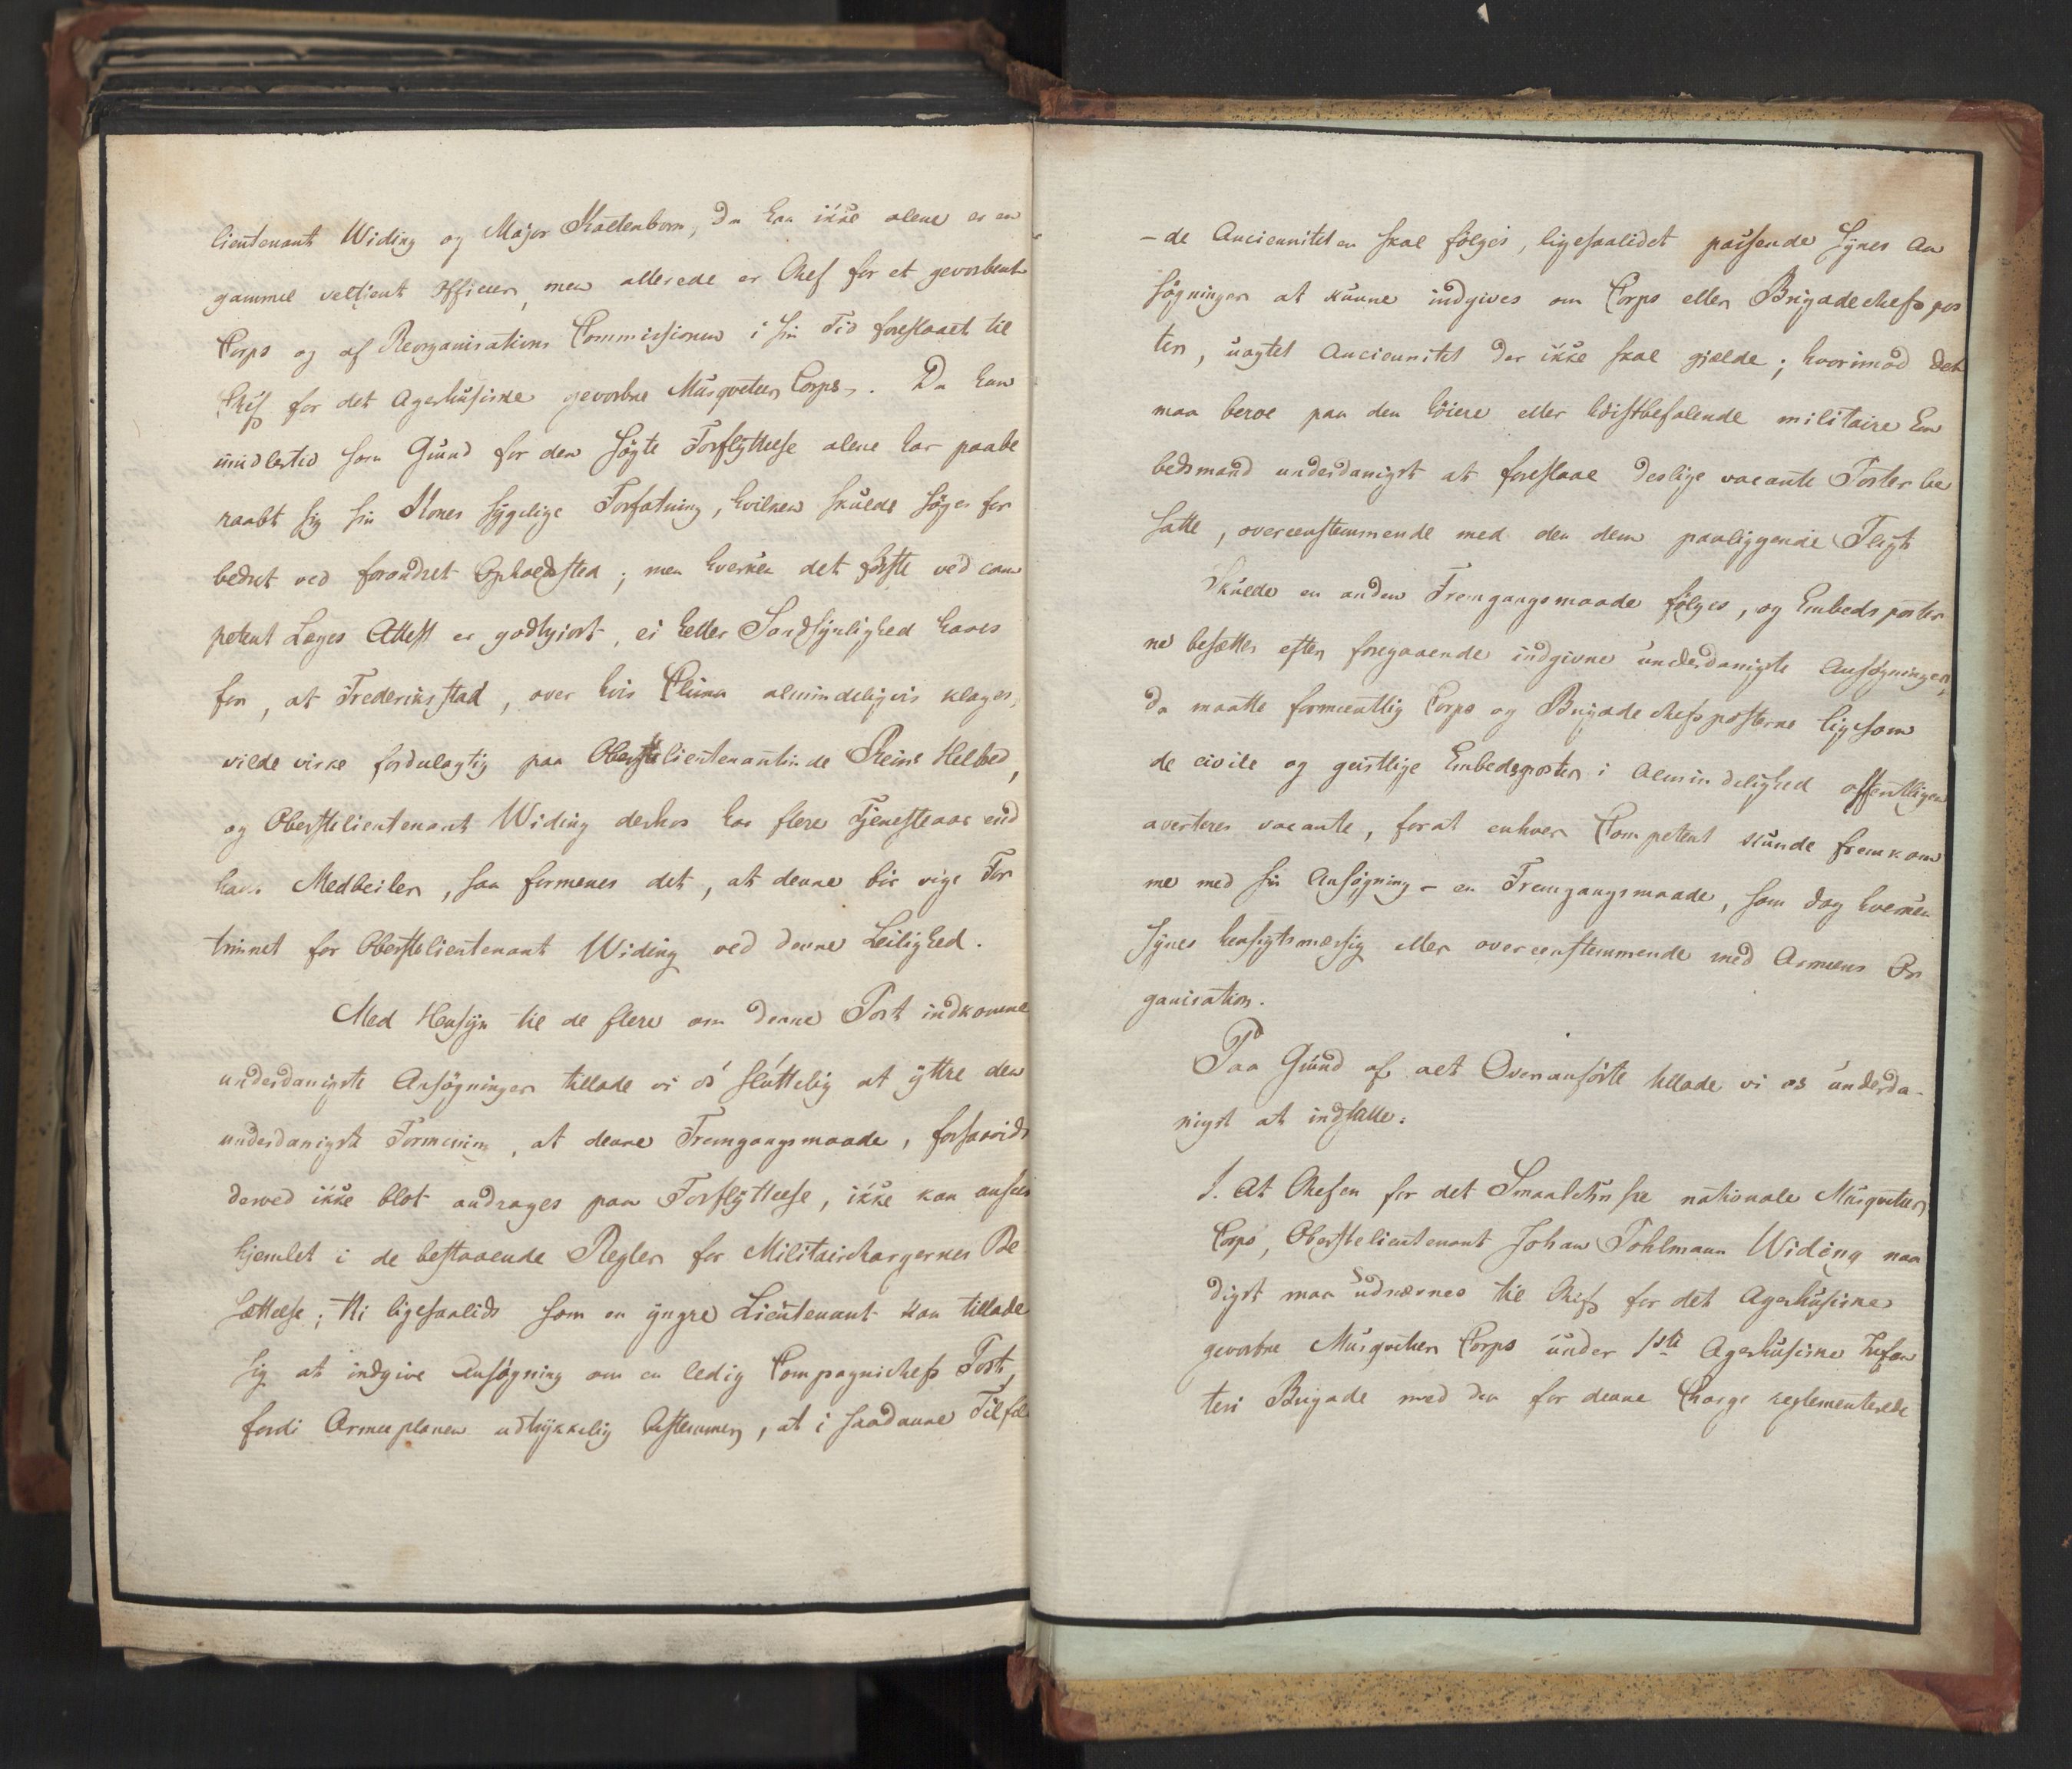 lieutenant Widing og Major Kaltenborn, da han ikke alene er en
gammel veltient Officeer, men allerede er Chef for et gevorbent
Corps og af Reorganisations Commissionen i sin Tid foreslaaet til
Chef for det Agerhusiske gevorbne Musqveteer Corps. Da han
imidlertid som Grund for den søgte Forflyttelse alene har paabe
raabt sig sin Kones sygelige Forfatning, hvilken skulde søges for
bedret ved forandret Opholdssted; men hverken det første ved com
petent Læges Attest er godtgiort, ei heller Sandsynlighed haves
for, at Frederiksstad, over hvis Clima almindeligviis klages,
vilde virke fordeelagtig paa Oberstlieutenantinde Reins Helbred,
og Oberstelieutenant Widing derhos har flere Tjenesteaar end
hans Medbeiler, saa formenes det, at denne bør vige For
trinnet for Oberstelieutenant Widing ved denne Leilighed.
Med Hensyn til de flere om denne Post indkomne
underdanigste Ansøgninger tillade vi os sluttelig at yttre den
underdanigste Formening, at denne Fremgangsmaade, forsaavidt
derved ikke blot andrages paa Forflyttelse, ikke kan ansees
hjemlet i de bestaaende Regler for Militairchargernes Be
sættelse; thi ligesaalidt som en yngre Lieutenant kan tillade
sig at indgive Ansøgning om en ledig Compagniechefs Post,
fordi Armeeplanen udtrykkelig bestemmer, at i saadanne Tilfæl
-de Ancienniteten skal følges, ligesaalidet passende synes An
søgninger at kunne indgives om Corps eller Brigadechefspos
ten, uagtet Anciennitet der ikke skal gjælde; hvorimod det
maa beroe paa den høiere eller høistbefalende militaire Em
bedsmand underdanigst at foreslaae deslige vacante Poster be
satte, overeenstemmende med den dem paaliggende Pligt
Skulde en anden Fremgangsmaade følges, og Embedsposter
ne besættes efter foregaaende indgivne underdanigste Ansøgninger,
da maatte formeentlig Corps og Brigadechefsposterne ligesom
de civile og geistlige Embedsposter i Almindelighed offentligen
averteres vacante, forat enhver Competent kunde fremkom
me med sin Ansøgning - en Fremgangsmaade, som dog hverken
synes hensigtsmæssig eller overeenstemmende med Armeens Or
ganisation.
Paa Grund af det Ovenanførte tillade vi os underda-
nigst at indstille:
1. At Chefen for det Smaalehnske nationale Musqveteer
Corps, Oberstelieutenant Johan Pohlmann Widing naa
digst maa udnævnes til Chef for det Agerhusiske
gevorbne Musqveteer Corps under 1ste Agerhusiske Infan
teri Brigade med den for denne Charge reglementerede